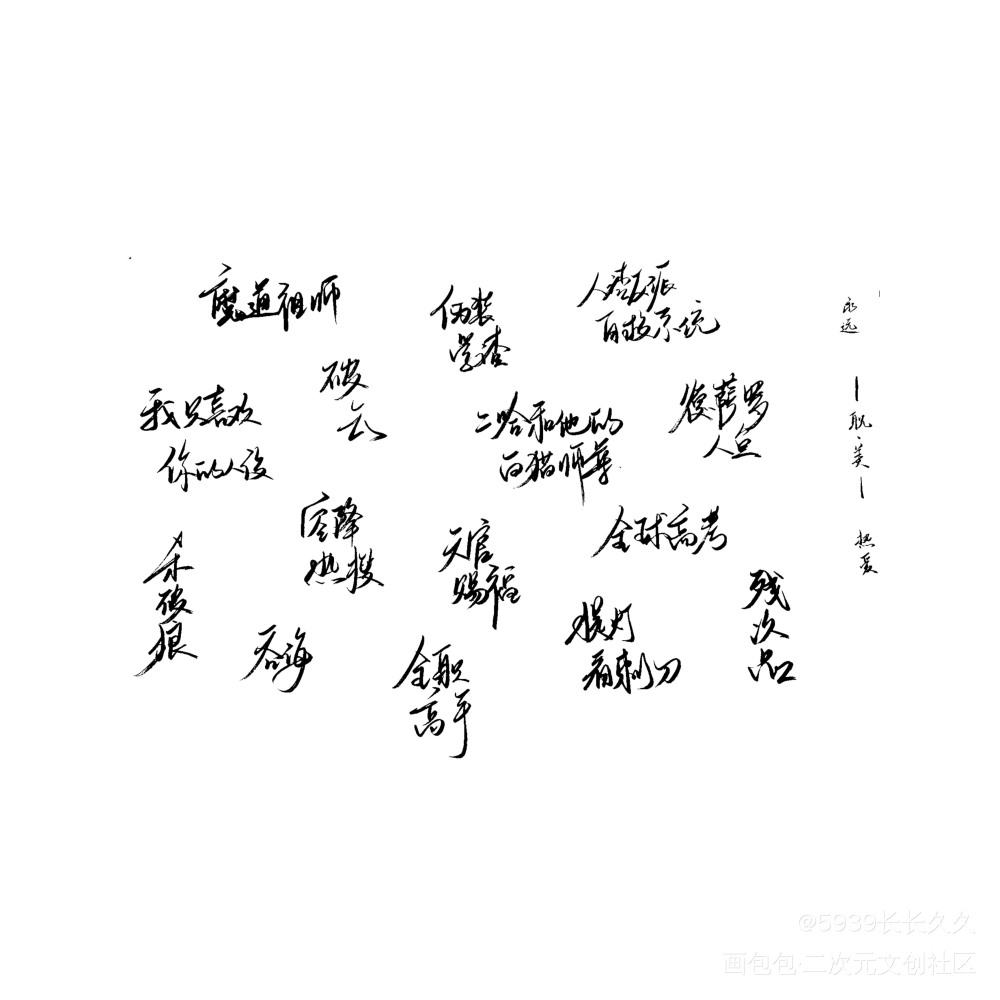 魔道祖师
伪装
学渣
人渣反派
自救系统
破
云
我只喜欢
你的人设
二哈和他的
白猫师尊
德萨罗
人鱼
空降
热搜
天官
赐福
全球高考
杀
破
狼
吞海
全职
高手
提灯
看刺刀
残
次
品
永远
耽美
热爱
@5939长长久久
画包包·二次元文创社区